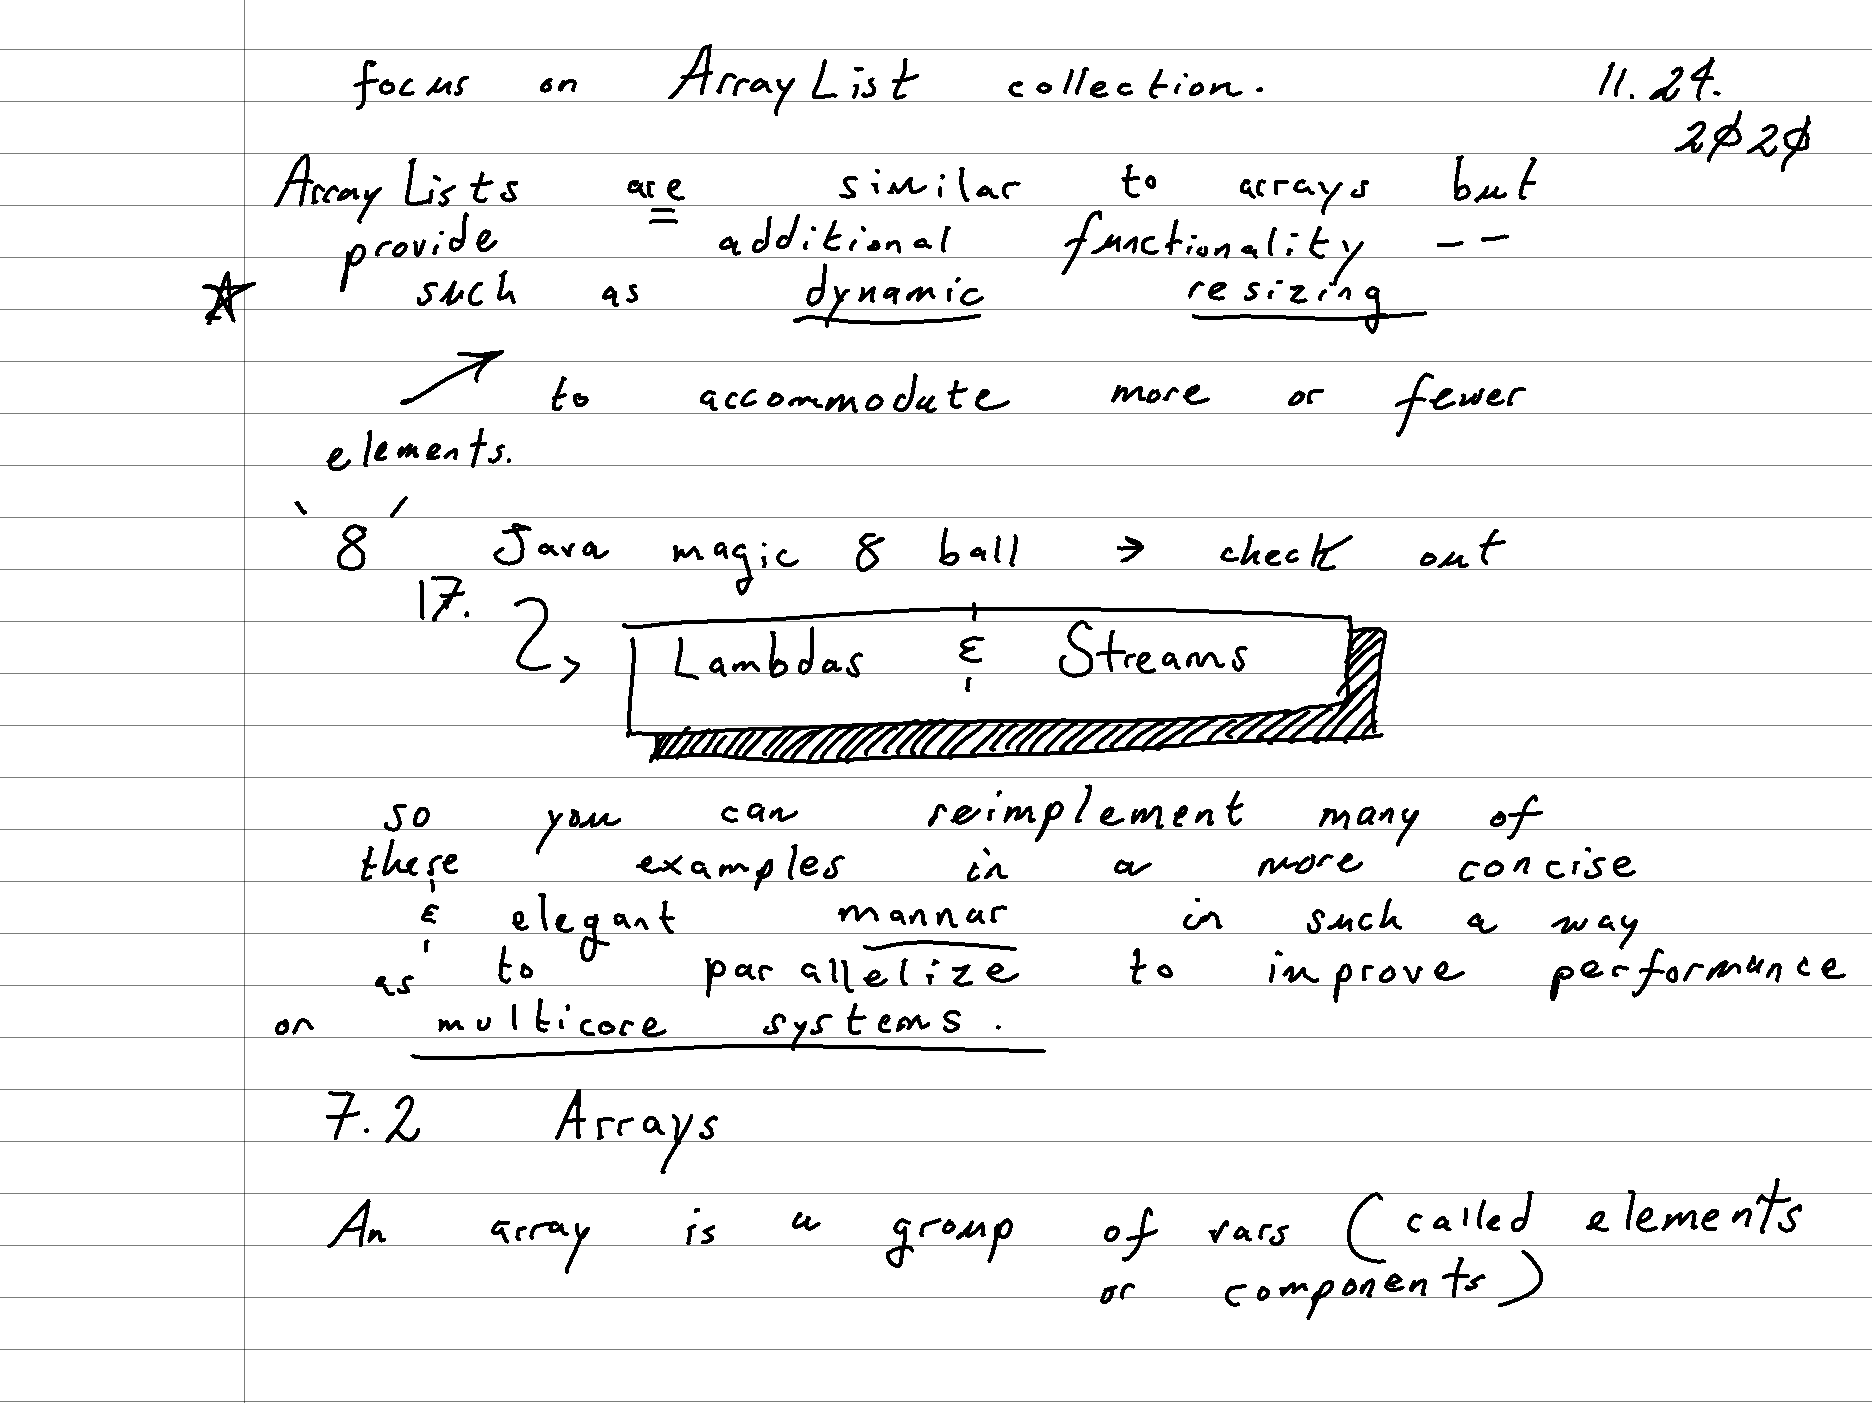 focus on ArrayList collection. 11.24.
2020
ArrayLists are similar to arrays but
provide additional functionality --
such as dynamic resizing
to accommodate more or fewer
elements.
`8´ Java magic 8 ball → check out
17.
Lambdas & Streams
so you can reimplement many of
these examples in a more concise
& elegant mannar in such a way
as to parallelize to improve performance
on multicore systems.
7.2 Arrays
An array is a group of vars (called elements
or components)